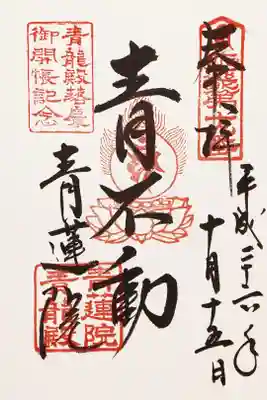 奉拝
平成二十六年
十月十五日
青不動
青蓮院
青龍殿落慶
御開帳記念
青蓮院
青龍殿